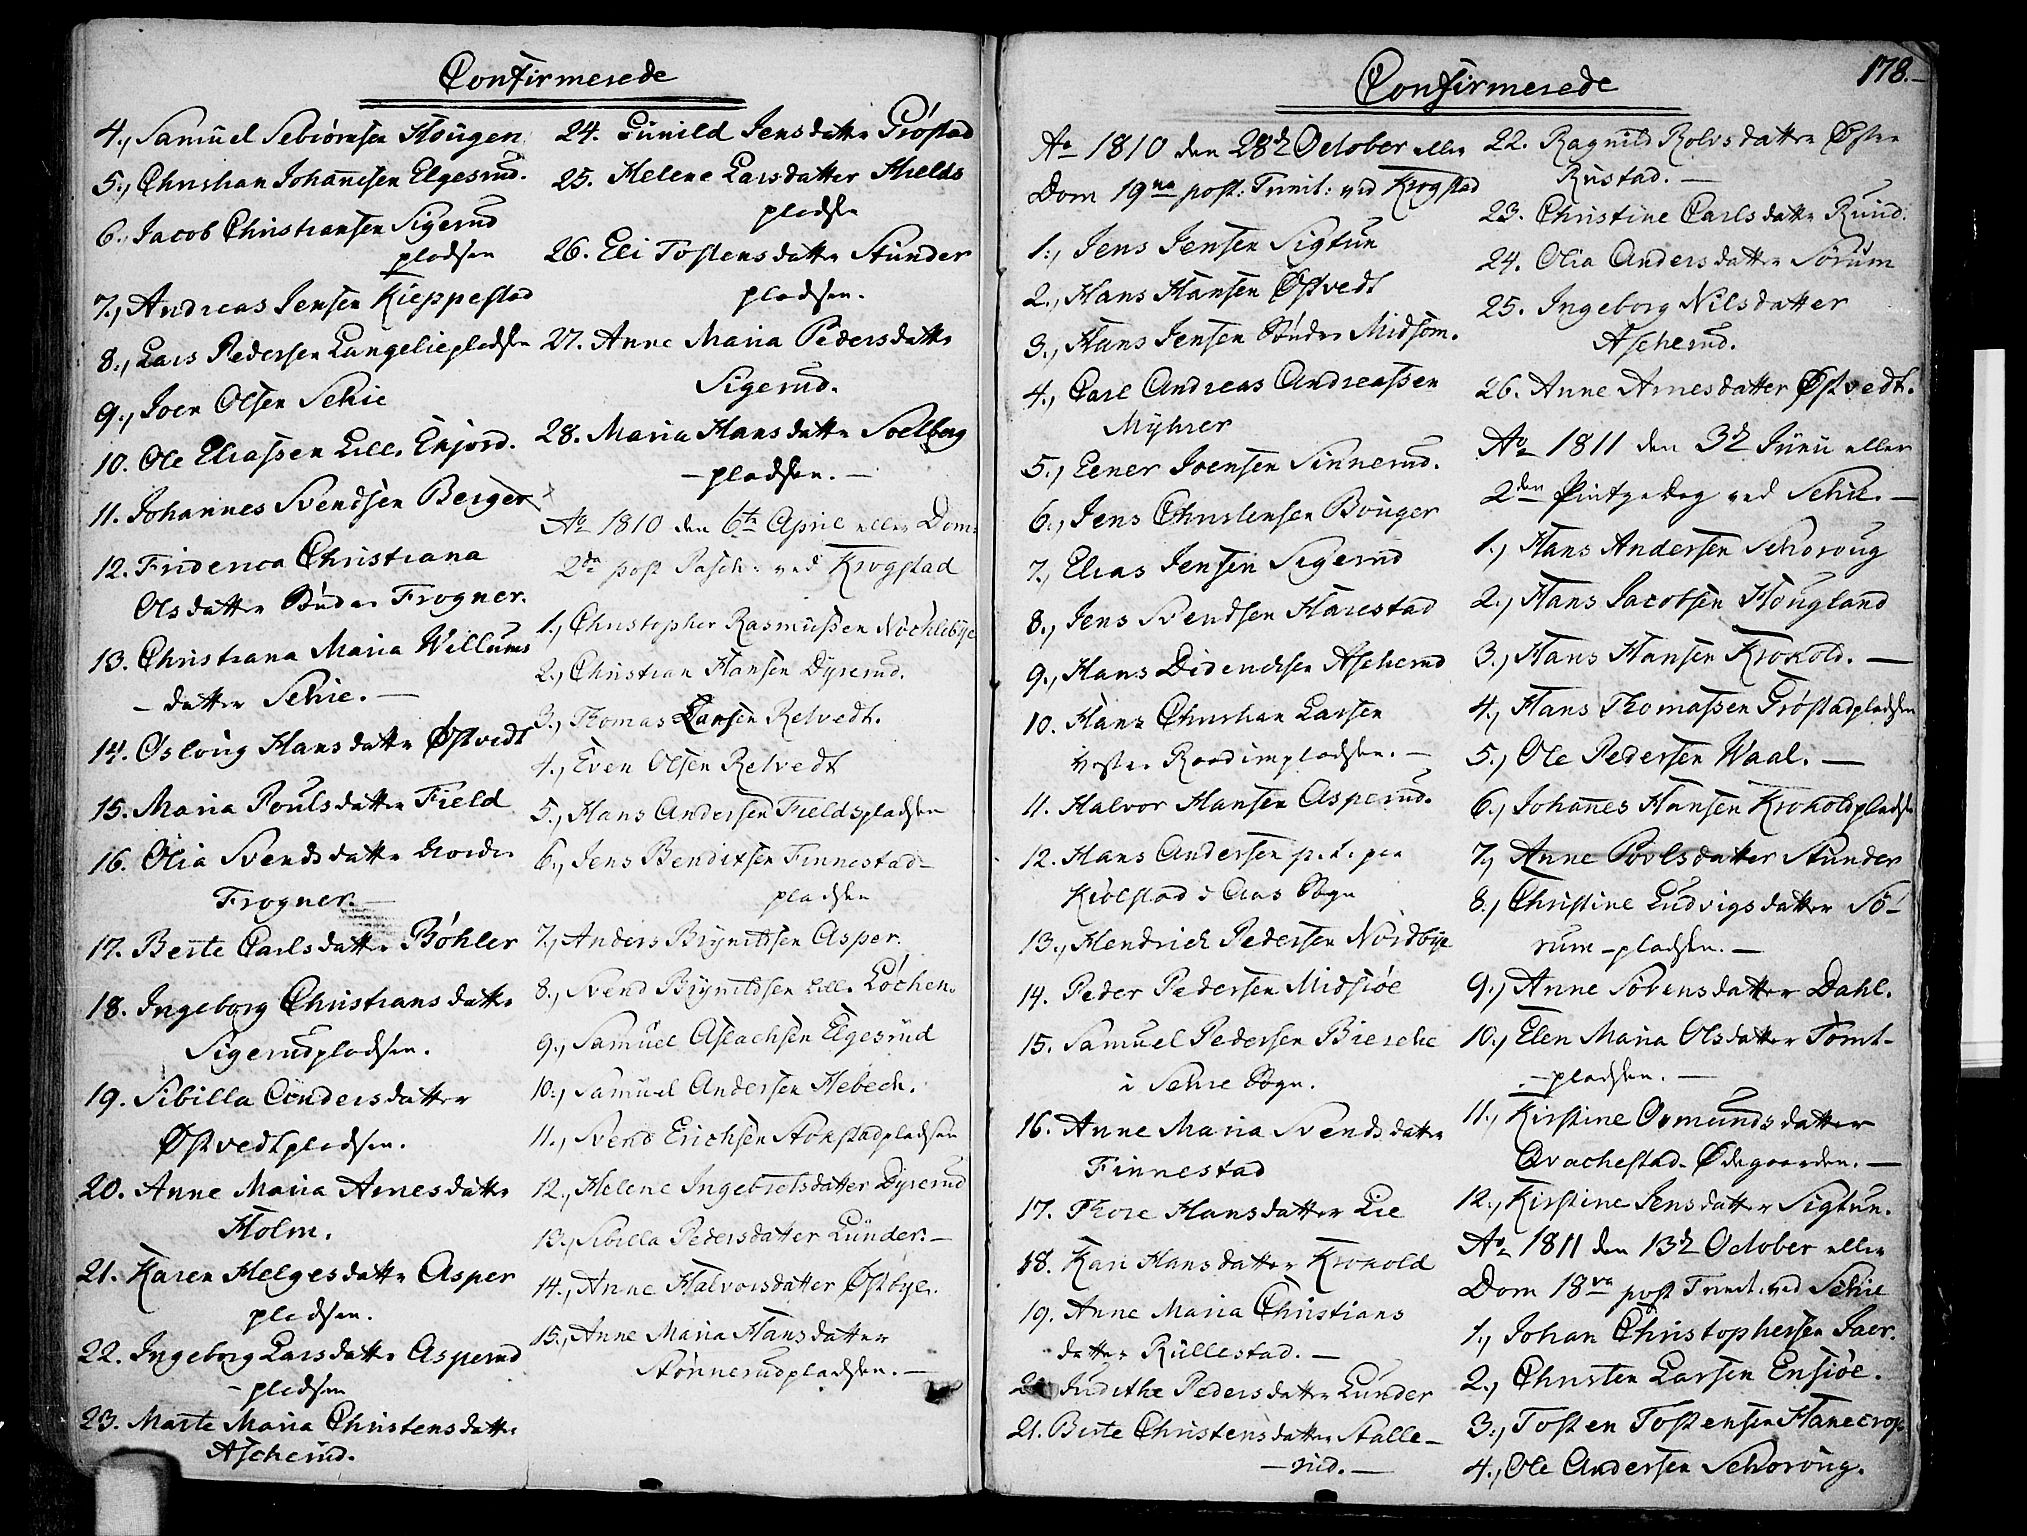 Confirmerede
4., Samuel Sebiörnsen Hougen
5., Christian Johannesen Elgesrud.
6., Jacob Christiansen Sigerud
pladsen
7., Andreas Jensen Kieppestad
8., Lars Pedersen Langeliepladsen
9., Joen Olsen Schie
10. Ole Eliassen Lille Enjord.
11. Johannes Svendsen Berger
12. Friderica Christiana
Olsdatter Sönder Frogner.
13. Christiana Maria Willums
- datter Schie. -
14. Osloug Hansdatter Østvedt
15. Maria Poulsdatter Field
16. Olia Svendsdatter Nordre
Frogner. -
17. Berte Carlsdatter Bøhler
18. Ingeborg Christiansdatter
Sigerudpladsen.
19. Sibilla Andersdatter
Østvedtpladsen.
20. Anne Maria Arnesdatter
Holm.
21. Karen Helgesdatter Asper
pladsen.
22. Ingeborg Larsdatter Asperud
- pladsen
23. Marte Maria Christensdatter
Ascherud.
24. Gunild Jensdatter Grøstad
25. Helene Larsdatter Fields
pladsen
26. Eli Tostensdatter Stunder
pladsen.
27. Anne Maria Pedersdatter
Sigerud.
28. Maria Hansdatter Soelberg
- pladsen. -
Ao 1810 den 6te April eller Dom:
2da post Pasch: ved Krogstad
1., Christopher Rasmussen Nöchlebÿe
2., Christian Hansen Dyrerud.
3., Thomas Larsen Retvedt.
4., Even Olsen Retvedt
5., Hans Andersen Fieldspladsen
6., Jens Bendixsen Finnestad-
pladsen
7., Anders Brynildsen Asper.
8., Svend Brynildsen Lille Løchen.
9., Samuel Aslachsen Elgesrud
10., Samuel Andersen Hebech.
11., Svend Erichsen Stokstadpladsen
12., Helene Ingebretsdatter Dyrerud
13., Sibilla Pedersdatter Lunder. -
14., Anne Halvorsdatter Østbye.
15., Anne Maria Hansdatter
Stønnerudpladsen. -
Confirmerede
178. -
Ao 1810 den 28de October eller
Dom 19na post: Trinit: ved Krogstad
1., Jens Jensen Sigtun
2., Hans Hansen Østvedt
3., Hans Jensen Sönder Midsom.
4., Carl Andreas Andreassen
Myhrer
5., Eener Joensen Sinnerud.
6., Jens Christensen Bouger
7., Elias Jensen Sigerud
8., Jens Svendsen Harestad
9., Hans Diderichsen Ascherud
10. Hans Christian Larsen
Vestre Roadimpladsen. -
11. Halvor Hansen Asperud.
12. Hans Andersen p. t. paa
Kiölstad i Aas Sogn
13., Hendrich Pedersen Nordbye
14. Peder Pedersen Midsiöe
15. Samuel Pedersen Bierche
i Schie Sogn.
16. Anne Maria Svendsdatter
Finnestad
17. Thore Hansdatter Lie
18. Kari Hansdatter Krokold
19. Anne Maria Christians
datter Rullestad. -
Judithe Pedersdatter Lunder
21. Berte Christensdatter Stalle-
- rud. -
22. Ragnild Rolvsdatter Østre
Rustad. -
23. Christine Carlsdatter Ruud.
24. Olia Andersdatter Sörum
25. Ingeborg Nilsdatter
Ascherud.
26. Anne Arnesdatter Østvedt.
Ao 1811 den 3de Junii eller
2den Pintzedag ved Schie. -
1., Hans Andersen Schoroug
2., Hans Jacobsen Hougland
3., Hans Hansen Krokold. -
4., Hans Thomassen Grøstadpladsen
5., Ole Pedersen Waal. -
6., Johannes Hansen Krokoldpladsen
7., Anne Povlsdatter Stunder
8., Christine Ludvigsdatter Sö-
rum-pladsen. -
9., Anne Sörensdatter Dahl.
10., Elen Maria Olsdatter Tomt-
- pladsen. -
11., Kirstine Osmundsdatter
Qvachestad-Ødegaarden. -
12., Kirstine Jensdatter Sigtun.
Ao 1811 den 13de October eller
Dom 18va post Trinit. ved Schie
1., Johan Christophersen Jaer.
2., Christen Larsen Ensiöe.
3., Tosten Tostensen Hanecrog
4., Ole Andersen Schoroug.